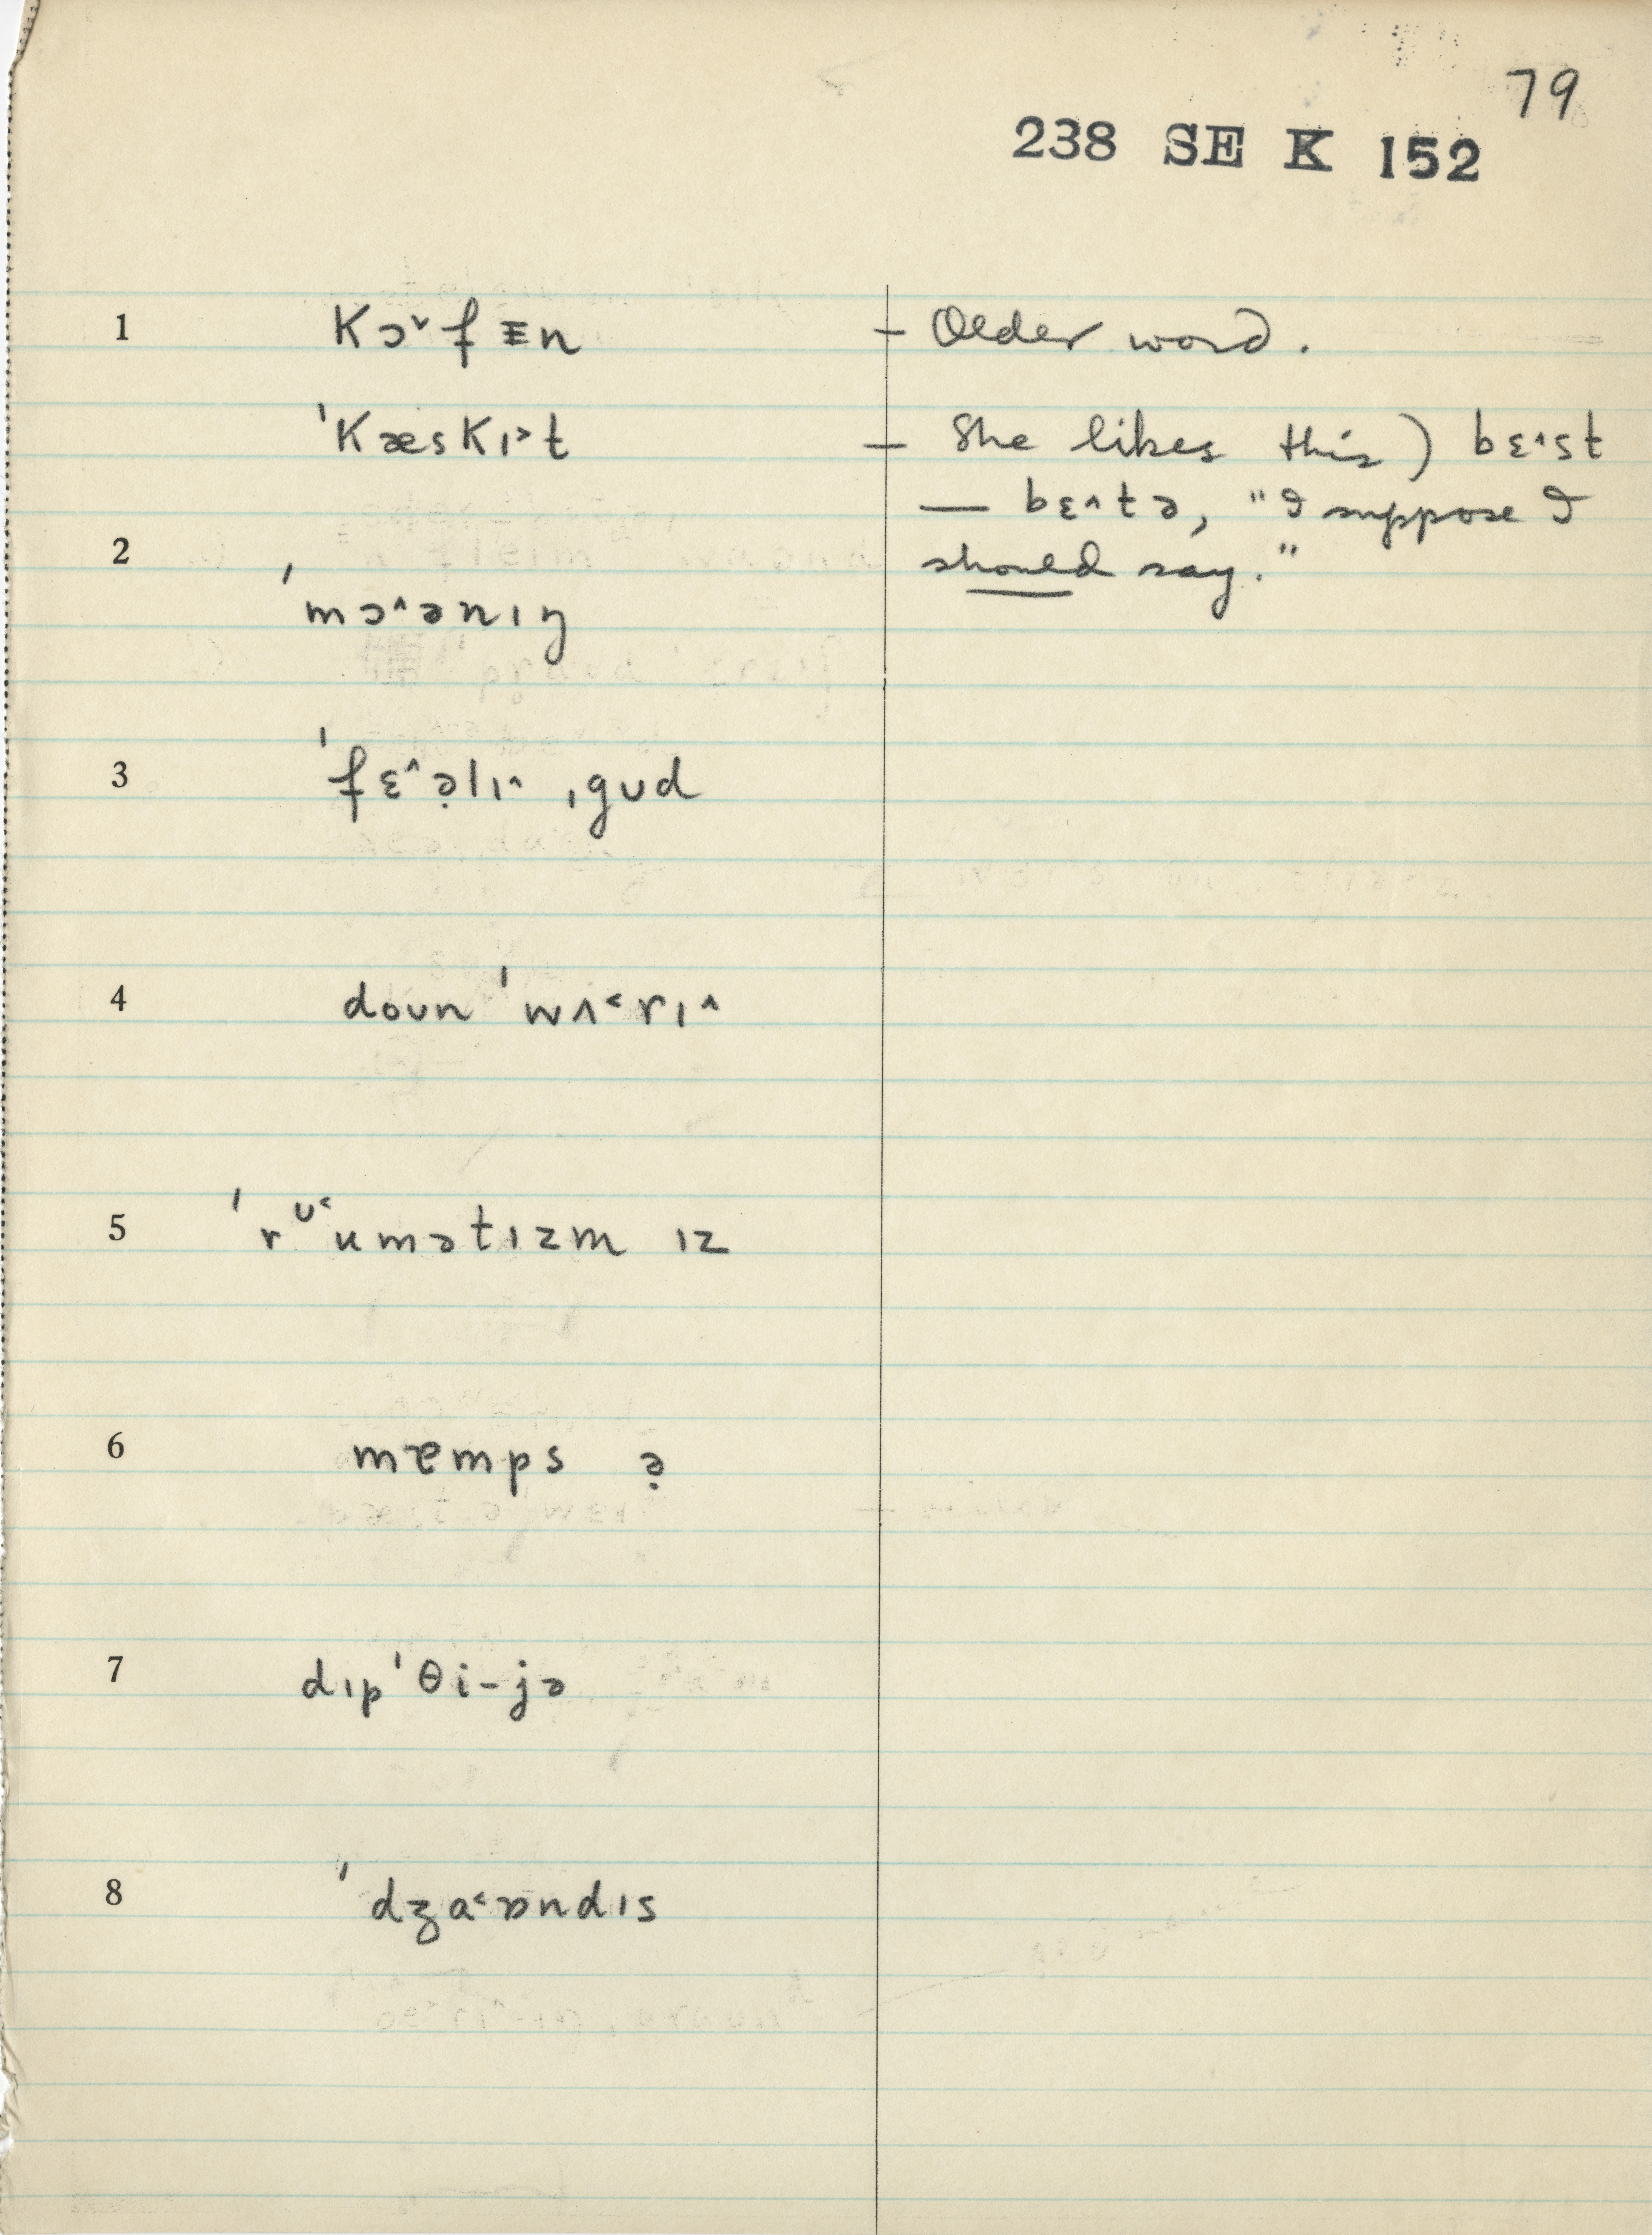 79
238 SE K 152
1 kɔ˅fɪn – Older word.
ˈkæskɪ˃t – She likes this) bɛ˄st
— bɛ˄tə, "I suppose I
2 should say."
ˈmɔ˄ənɪŋ
3 ˈfɛ˄ə̣lɪ˄ ˌgud
4 doun ˈwʌ˂rɪ˄
5 ˈrᶷ˂umətɪzm ɪz
6 mæmps ə̣
7 dɪpˈθi-jə
8 ˈdʒa˂ɒndɪs